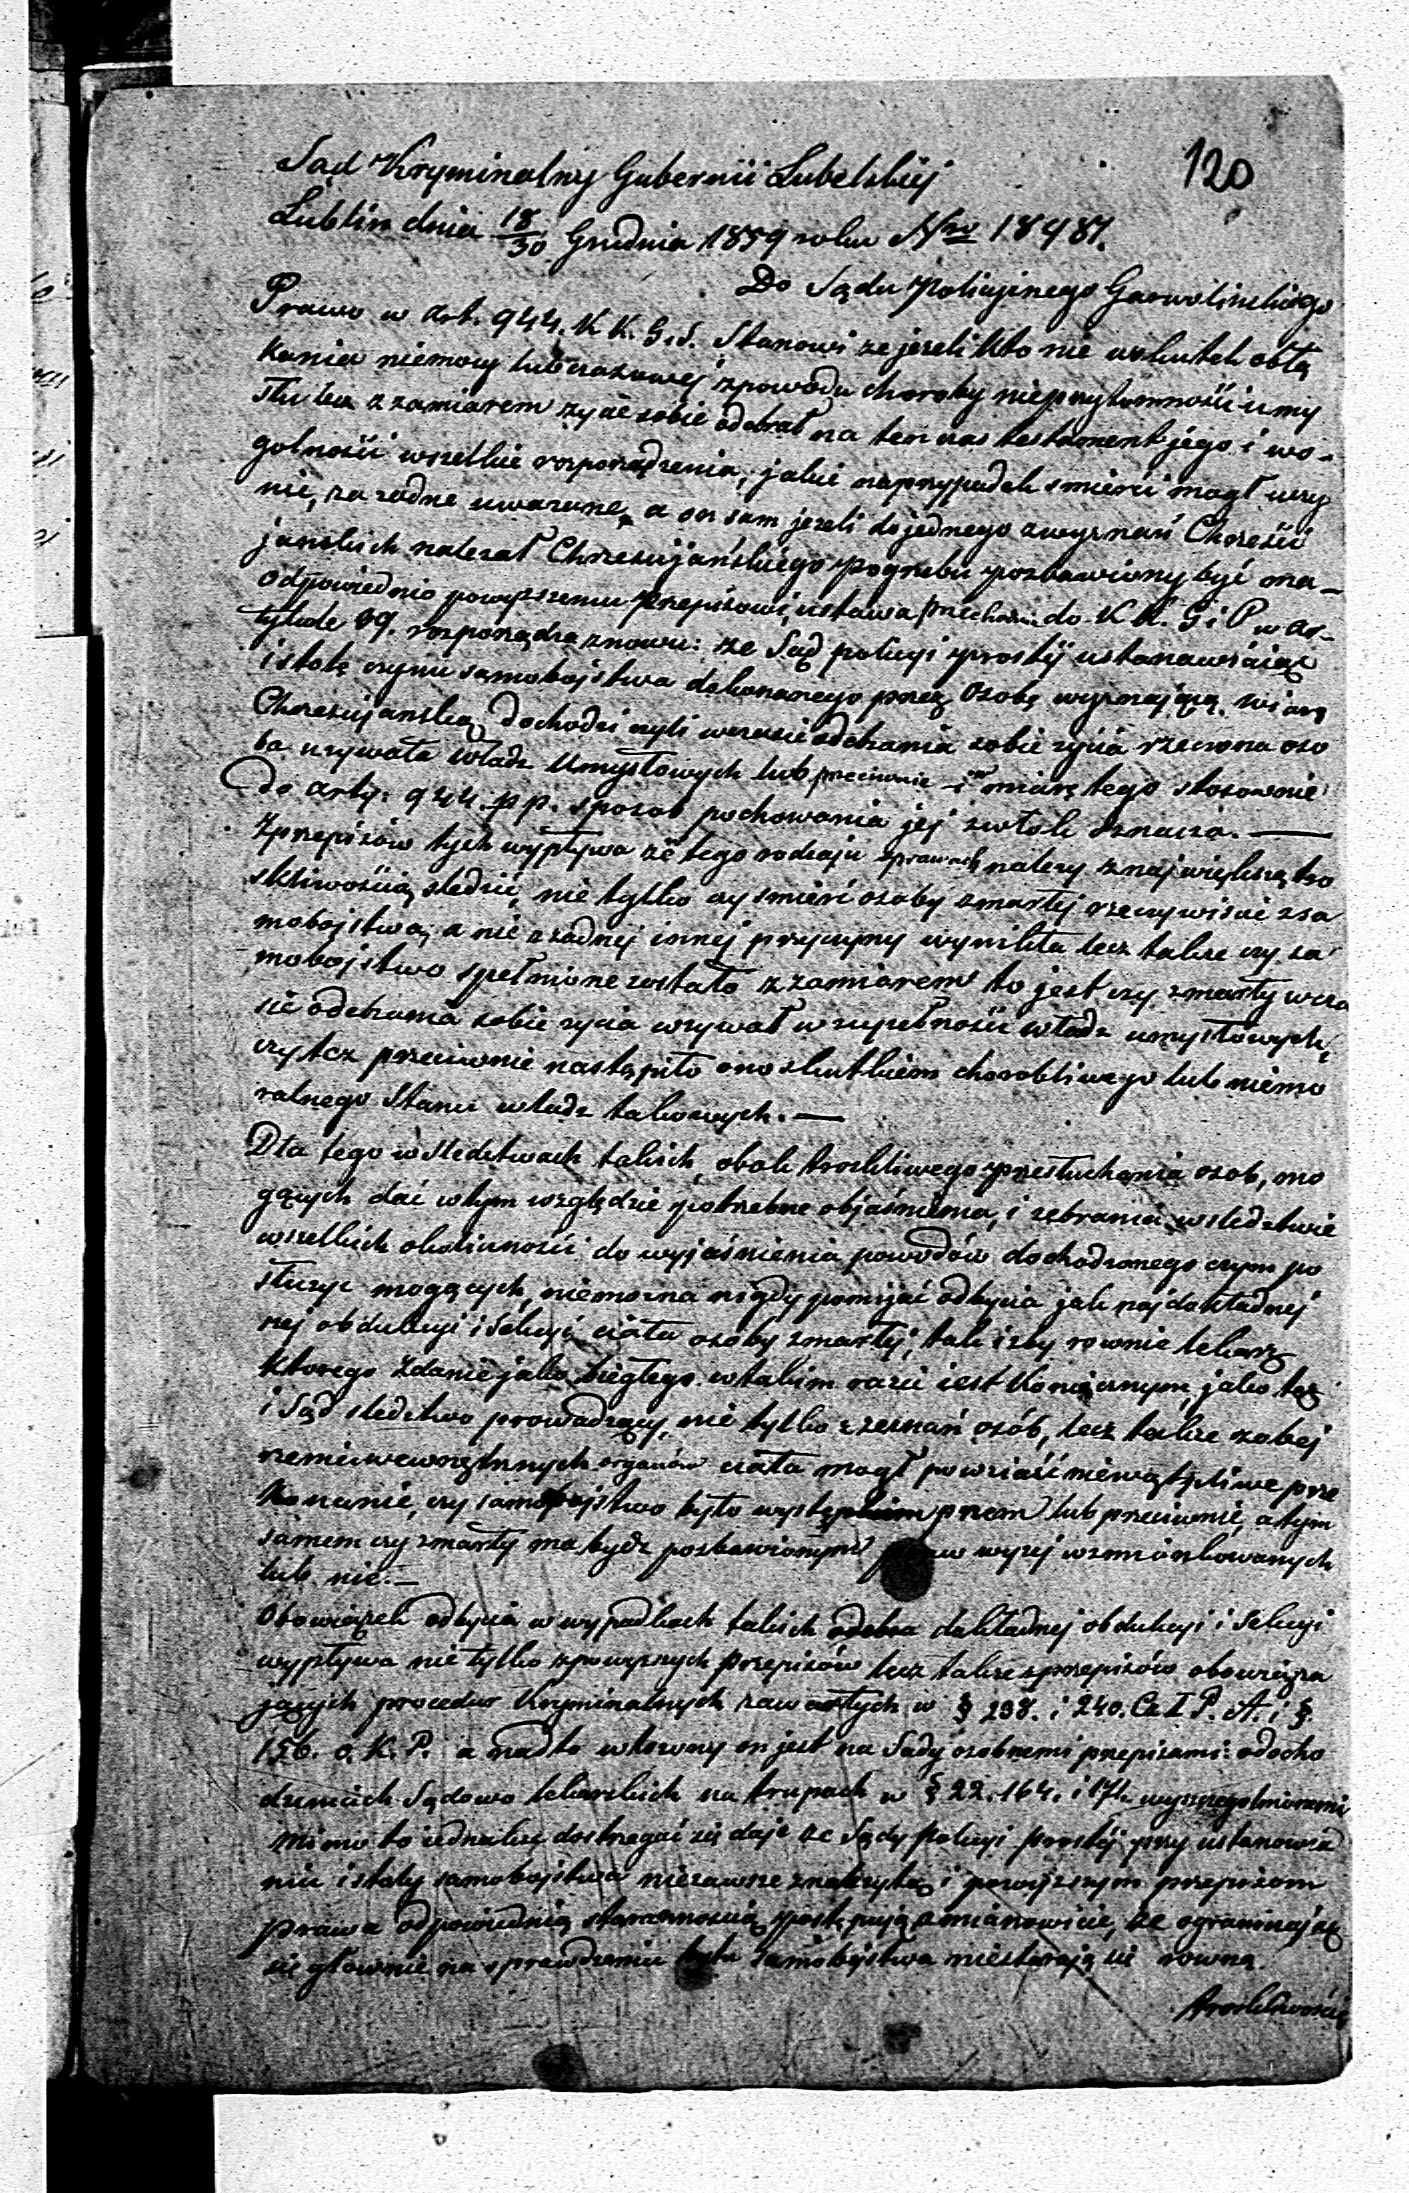 120
Sąd Kryminalny Gubernii Lubelskiej
Lublin dnia 18/30 Grudnia 1859 roku Nro 18487.
Do Sądu Policyjnego Garwolińskiego
Prawo w art. 944. K K. G. i S. Stanowi że jezeli kto nie wskutek obłą
kania niemocy lub czasowej z powodu choroby nieprzytomności umy
słu lecz z zamiarem życie sobie odebrał na ten czas testament jego i wo-
golności wszelkie rozporządzenia, jakie naprzypadek smierci mogł uczy
nić, za żadne uwazane, a on sam jezeli do jednego z wyznań Chrześci
janskich nalezał Chrzescijańskiego pogrzebu pozbawiony być ma_
odpowiednio powyzszemu przepisowi, ustawa przechodnia do K K. G i P w ar-
tykule 89. rozporządza znowu: ze Sąd policyi prostéj ustanawiaiąc
istotę czynu samobojstwa dokonanego przez Osobę wyznającą wiarę
Chrzescijanską, dochodzi czyli w czasie odebrania sobie zycia rzeczona oso
ba uzywała władz Umysłowych lub przeciwnie i w miarę tego stosownie
do arty: 944. pp. sposob pochowania jej zwłok oznacza. —
Z przepisów tych wypływa że tego rodzaju sprawach nalezy z największą tro
skliwością sledzić, nie tylko czy smierć osoby zmarłej rzeczywiscie z sa
mobojstwa, a nie z zadnej innej przyczyny wynikła lecz takze czy sa
mobojstwo spełnione zostało z zamiarem to jest czy zmarły w cza
sie odebrania sobie zycia uzywał w zupełności władz umysłowych,
czy tez przeciwnie nastąpiło ono skutkiem chorobliwego lub niemo
ralnego Stanu władz takowych. —
Dla tego w sledztwach takich, obok troskliwego przesłuchania osob, mo
gących dać w tym względzie potrzebne objaśnienia, i zebrania w sledztwie
wszelkich okoliczności do wyjaśnienia powodów dochodzonego czynu po
służyc mogących, niemozna nigdy pomijać odbycia jak najdokładniej
szej obdukcyi i Sekcyi ciała osoby zmarłej, tak izby rownie lekarz
ktorego zdanie jako biegłego w takim razie iest koniecznym, jako też
i Sąd sledztwo prowadzący, nie tylko z zeznań osób, lecz takze z obej
rzenia wewnętrznych organów ciała mogł powziąść niewątpliwe prze
konanie, czy samobojstwo było występnem lub przeciwnie, a tym
samem czy zmarły ma bydź pozbawionym praw wyzej wzmiankowanych
lub nie. —
Obowiązek odbycia w wypadkach takich dokładnej obdukcyi i Sekcyi
wypływa nie tylko z powyzszych przepisów lecz takze z przepisów obowiązu
jących procedur Kryminalnych zawartych w § 238. i 240. Cz I P. A. i §.
156. O. K. P. a nadto włozony on jest na Sądy osobnemi przepisami: o docho
dzeniach Sądowo lekarskich na trupach w § 22. 164. i 171. wyszczegolnionemi
Mimo to jednakze dostrzegać się daje ze Sądy Policyi prostéj przy ustanowie
niu istoty samobojstwa niezawsze z nalezytą i powyzszym przepisom
prawa odpowiednią starannoscią postępują a mianowicie, ze ograniczając
się głównie na sprawdzeniu samobójstwa niestarają się z rowną
troskliwością